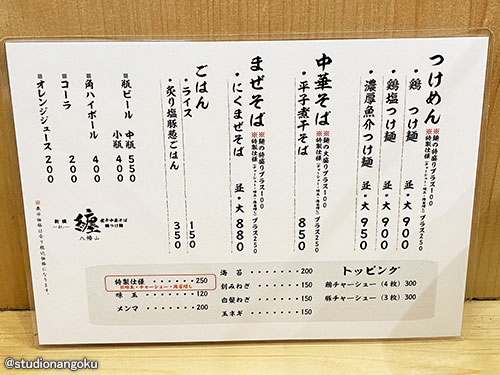 つけめん
※麺の特盛りプラス100
※特製仕様
プラス250
・鶏 つけ麺 並・大 900
・鶏塩つけ麺 並・大 900
・濃厚魚介つけ麺 並・大 950
中華そば
※麺の大盛りプラス100
※特製仕様
プラス250
・平子煮干そば 850
まぜそば
※麺の特盛りプラス100
※特製仕様
プラス250
・にくまぜそば 並・大 880
ごはん
・ライス 150
・炙り塩豚葱ごはん 350
※瓶ビール 中瓶 550
小瓶 400
※角ハイボール 400
※コーラ 200
※オレンジジュース 200
※表示価格は全て税込価格になります。
新橋
纏
八幡山
煮干中華そば
鶏つけ麺
トッピング
鶏チャーシュー(4枚)300
豚チャーシュー(3枚)300
海苔・・・・・・200
刻みねぎ・・・・150
白髪ねぎ・・・・150
玉ネギ・・・・・150
特製仕様・・・・・・250
※味玉・チャーシュー・海苔増し
味玉・・・・・・120
メンマ・・・・・200
@studionangoku